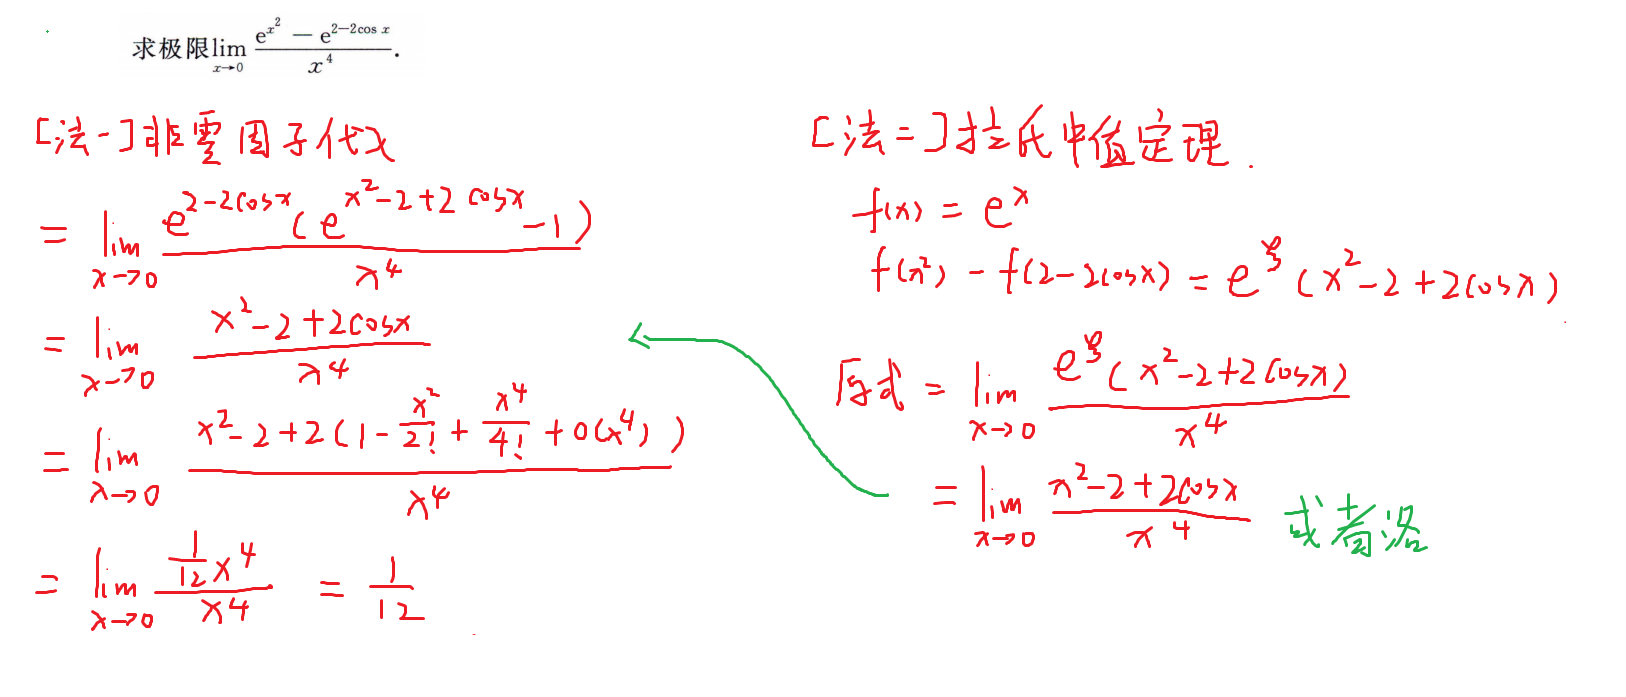 求极限 lim_{x→0} (e^{x^2} − e^{2−2cos x}) / x^4.
[法一] 非零因子代入
= lim_{x→0} e^{2-2cosx}(e^{x^2-2+2cosx} -1) / x^4
= lim_{x→0} (x^2-2+2cosx) / x^4
= lim_{x→0} (x^2-2+2(1-x^2/2!+x^4/4!+o(x^4))) / x^4
= lim_{x→0} (1/12 x^4) / x^4 = 1/12
[法二] 拉氏中值定理.
f(x) = e^x
f(x^2) - f(2-2cosx) = e^ξ (x^2-2+2cosx)
原式 = lim_{x→0} e^ξ(x^2-2+2cosx) / x^4
= lim_{x→0} (x^2-2+2cosx) / x^4 或者洛